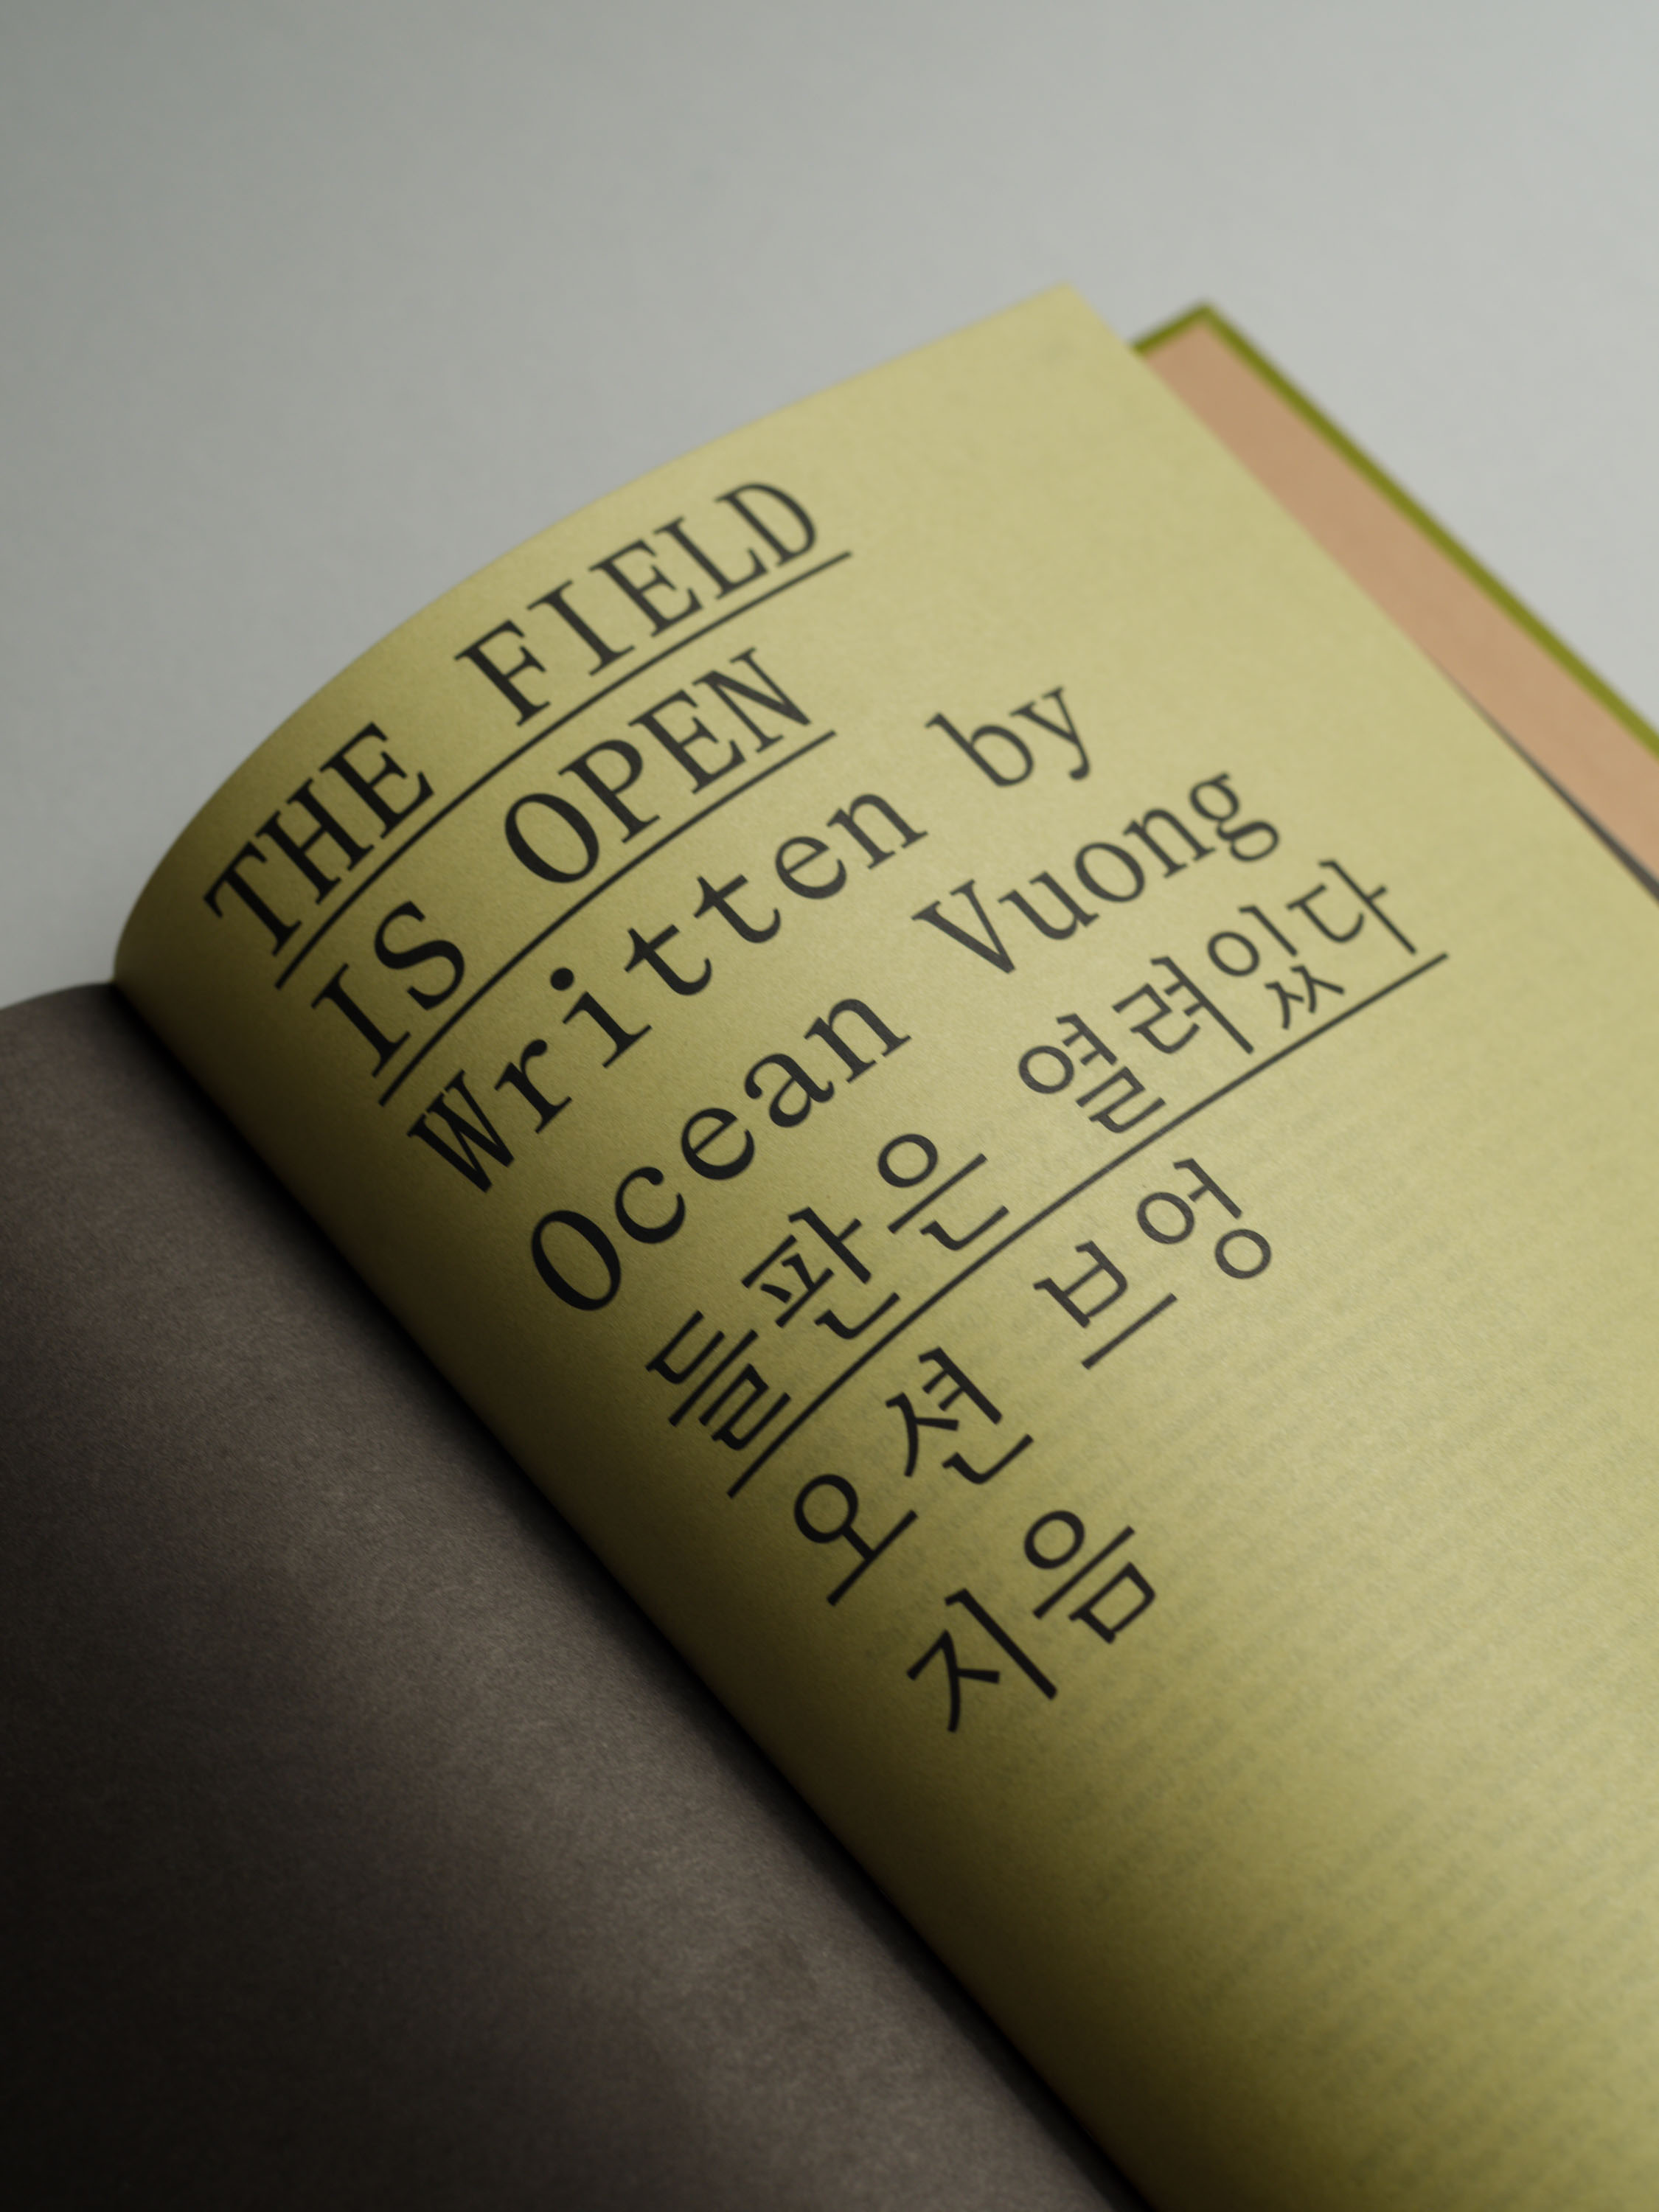 THE FIELD
IS OPEN
Written by
Ocean Vuong
들판은 열려있다
오션 브엉
지음